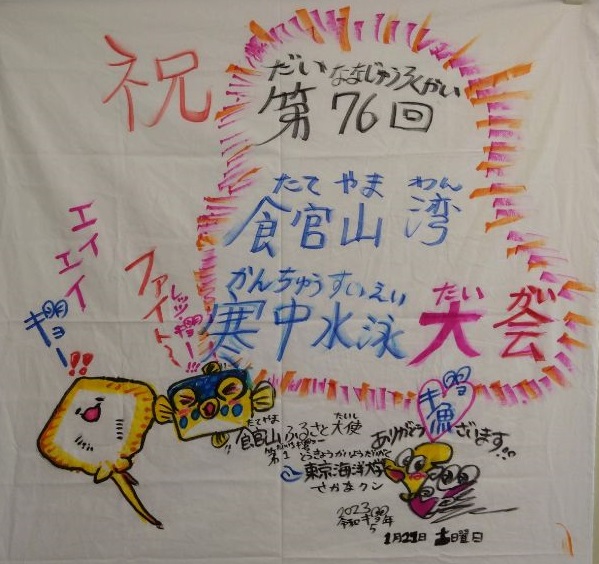 祝
だいななじゅうろくかい
第76回
たてやまわん
館山湾
かんちゅうすいえいたいかい
寒中水泳大会
エイエイ
ギョー!!
ファイト〜
レッツギョー!!!
たてやま たいし
館山ふるさと大使
東京海洋大学
さかなクン
ありがとうギョざいます!!
2023
令和5年
1月21日 土曜日